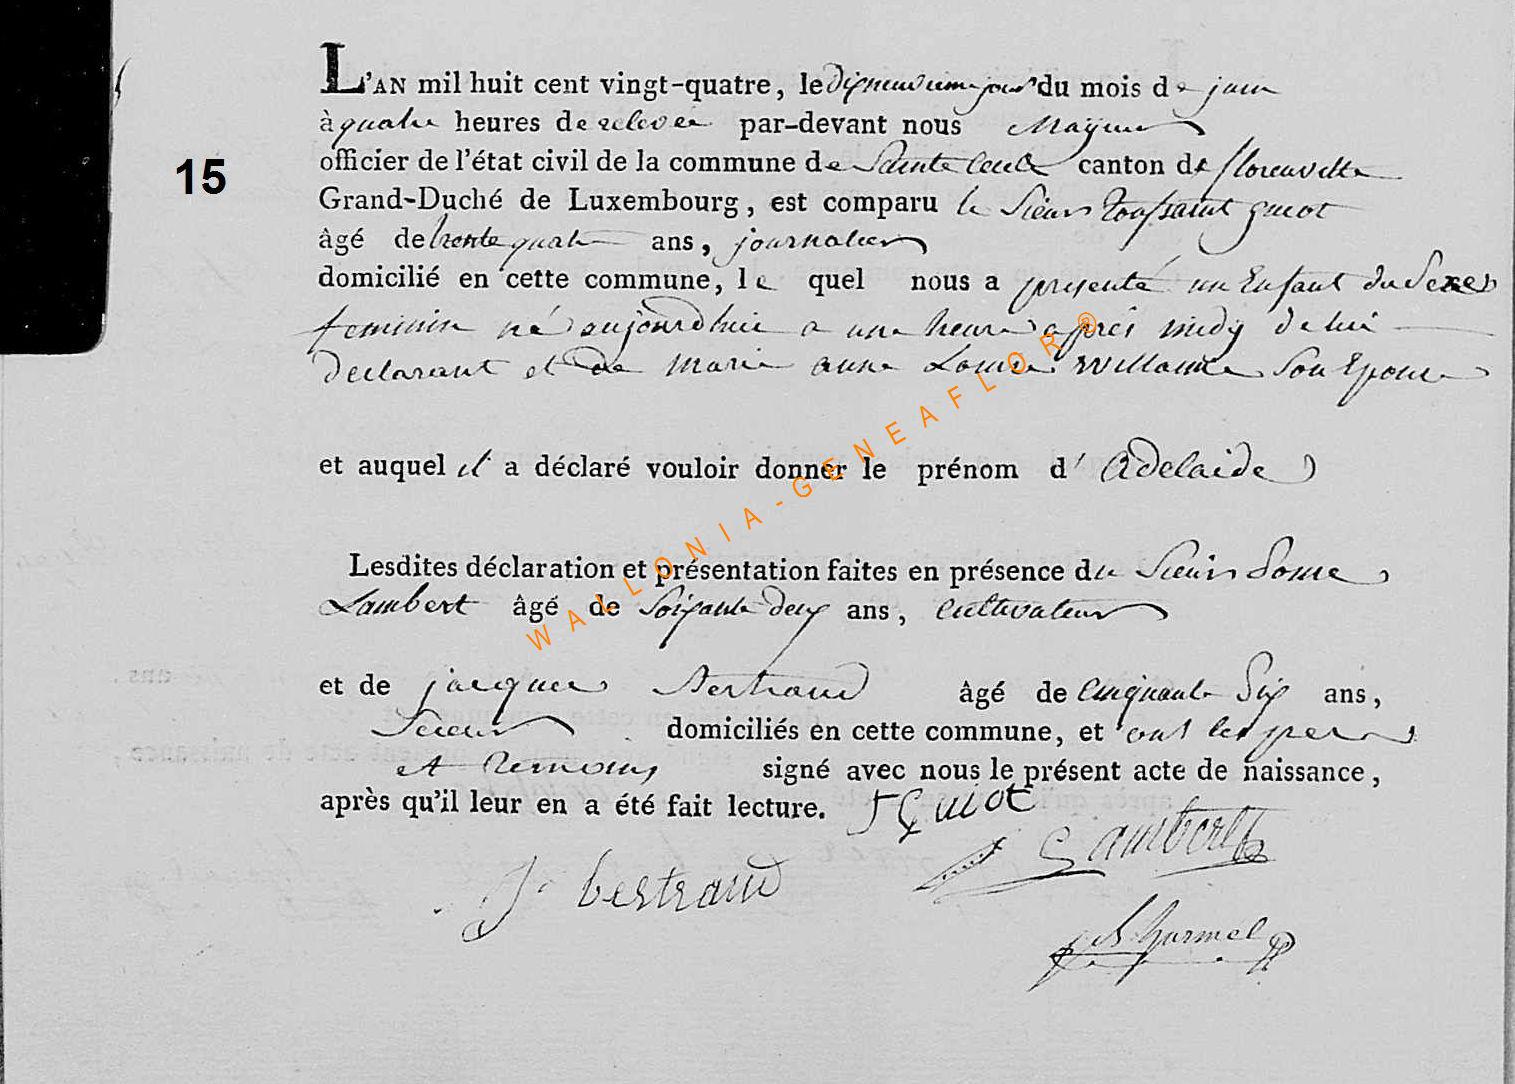 L'AN mil huit cent vingt-quatre, le dixneuvieme jour du mois de juin
à quatre heures de relevée par-devant nous Mayeur
15
officier de l'état civil de la commune de Sainte Cecile canton de florenville
Grand-Duché de Luxembourg, est comparu le Sieur Toussaint guiot
âgé de trente quatre ans, journalier
domicilié en cette commune, le quel nous a presenté un Enfant du Sexe
feminin né aujourd'huie a une heure après midy de lui
declarant et de marie anne Willaime Son Epouse
et auquel il a déclaré vouloir donner le prénom d' Adelaide
WALLONIA-GENEAFLOR®
Lesdites déclaration et présentation faites en présence du Sieur
Lambert âgé de Soixante deux ans, Cultivateur
et de jacques Bertrand âgé de Cinquante Six ans,
domiciliés en cette commune, et ont les pere
et temoins signé avec nous le présent acte de naissance,
après qu'il leur en a été fait lecture. T Guiot
Lambert
J. bertrand